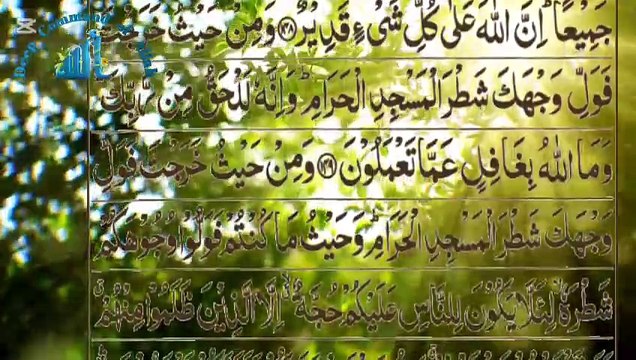 جَمِيْعًا ؕ اِنَّ اللّٰهَ عَلٰى كُلِّ شَىْءٍ قَدِيْرٌ ﴿۱۴۸﴾ وَمِنْ حَيْثُ خَرَجْتَ
فَوَلِّ وَجْهَكَ شَطْرَ الْمَسْجِدِ الْحَرَامِ ؕ وَاِنَّهٗ لَلْحَقُّ مِنْ رَّبِّكَ ؕ
وَمَا اللّٰهُ بِغَافِلٍ عَمَّا تَعْمَلُوْنَ ﴿۱۴۹﴾ وَمِنْ حَيْثُ خَرَجْتَ فَوَلِّ
وَجْهَكَ شَطْرَ الْمَسْجِدِ الْحَرَامِ ؕ وَحَيْثُ مَا كُنْتُمْ فَوَلُّوْا وُجُوْهَكُمْ
شَطْرَهٗ ۙ لِئَلَّا يَكُوْنَ لِلنَّاسِ عَلَيْكُمْ حُجَّةٌ ۙ اِلَّا الَّذِيْنَ ظَلَمُوْا مِنْهُمْ ۗ